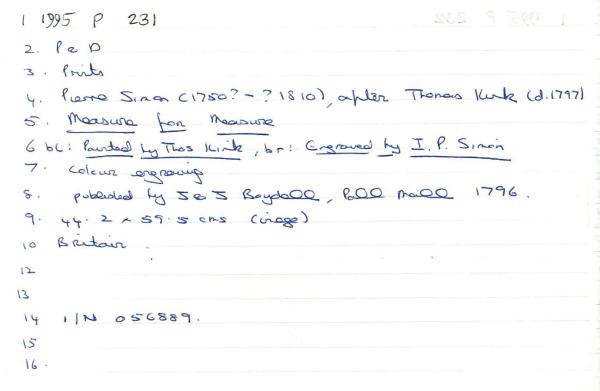 1 1995 P 231
2. P & D
3. Prints
4. Pierre Simon (1750? - ? 1810), after Thomas Kirk (d.1797)
5. Measure for Measure
6 bl: Painted by Thos Kirk, br: Engraved by I. P. Simon
7. Colour engraving
8. published by J & J Boydell, Pall Mall 1796.
9. 44.2 x 59.5 cms (image)
10 Britain.
12
13
14 I/N 056889.
15
16.